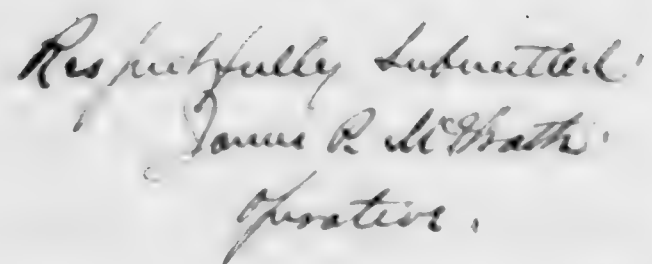 Respectfully Submitted.
James P. McGrath.
Operative.